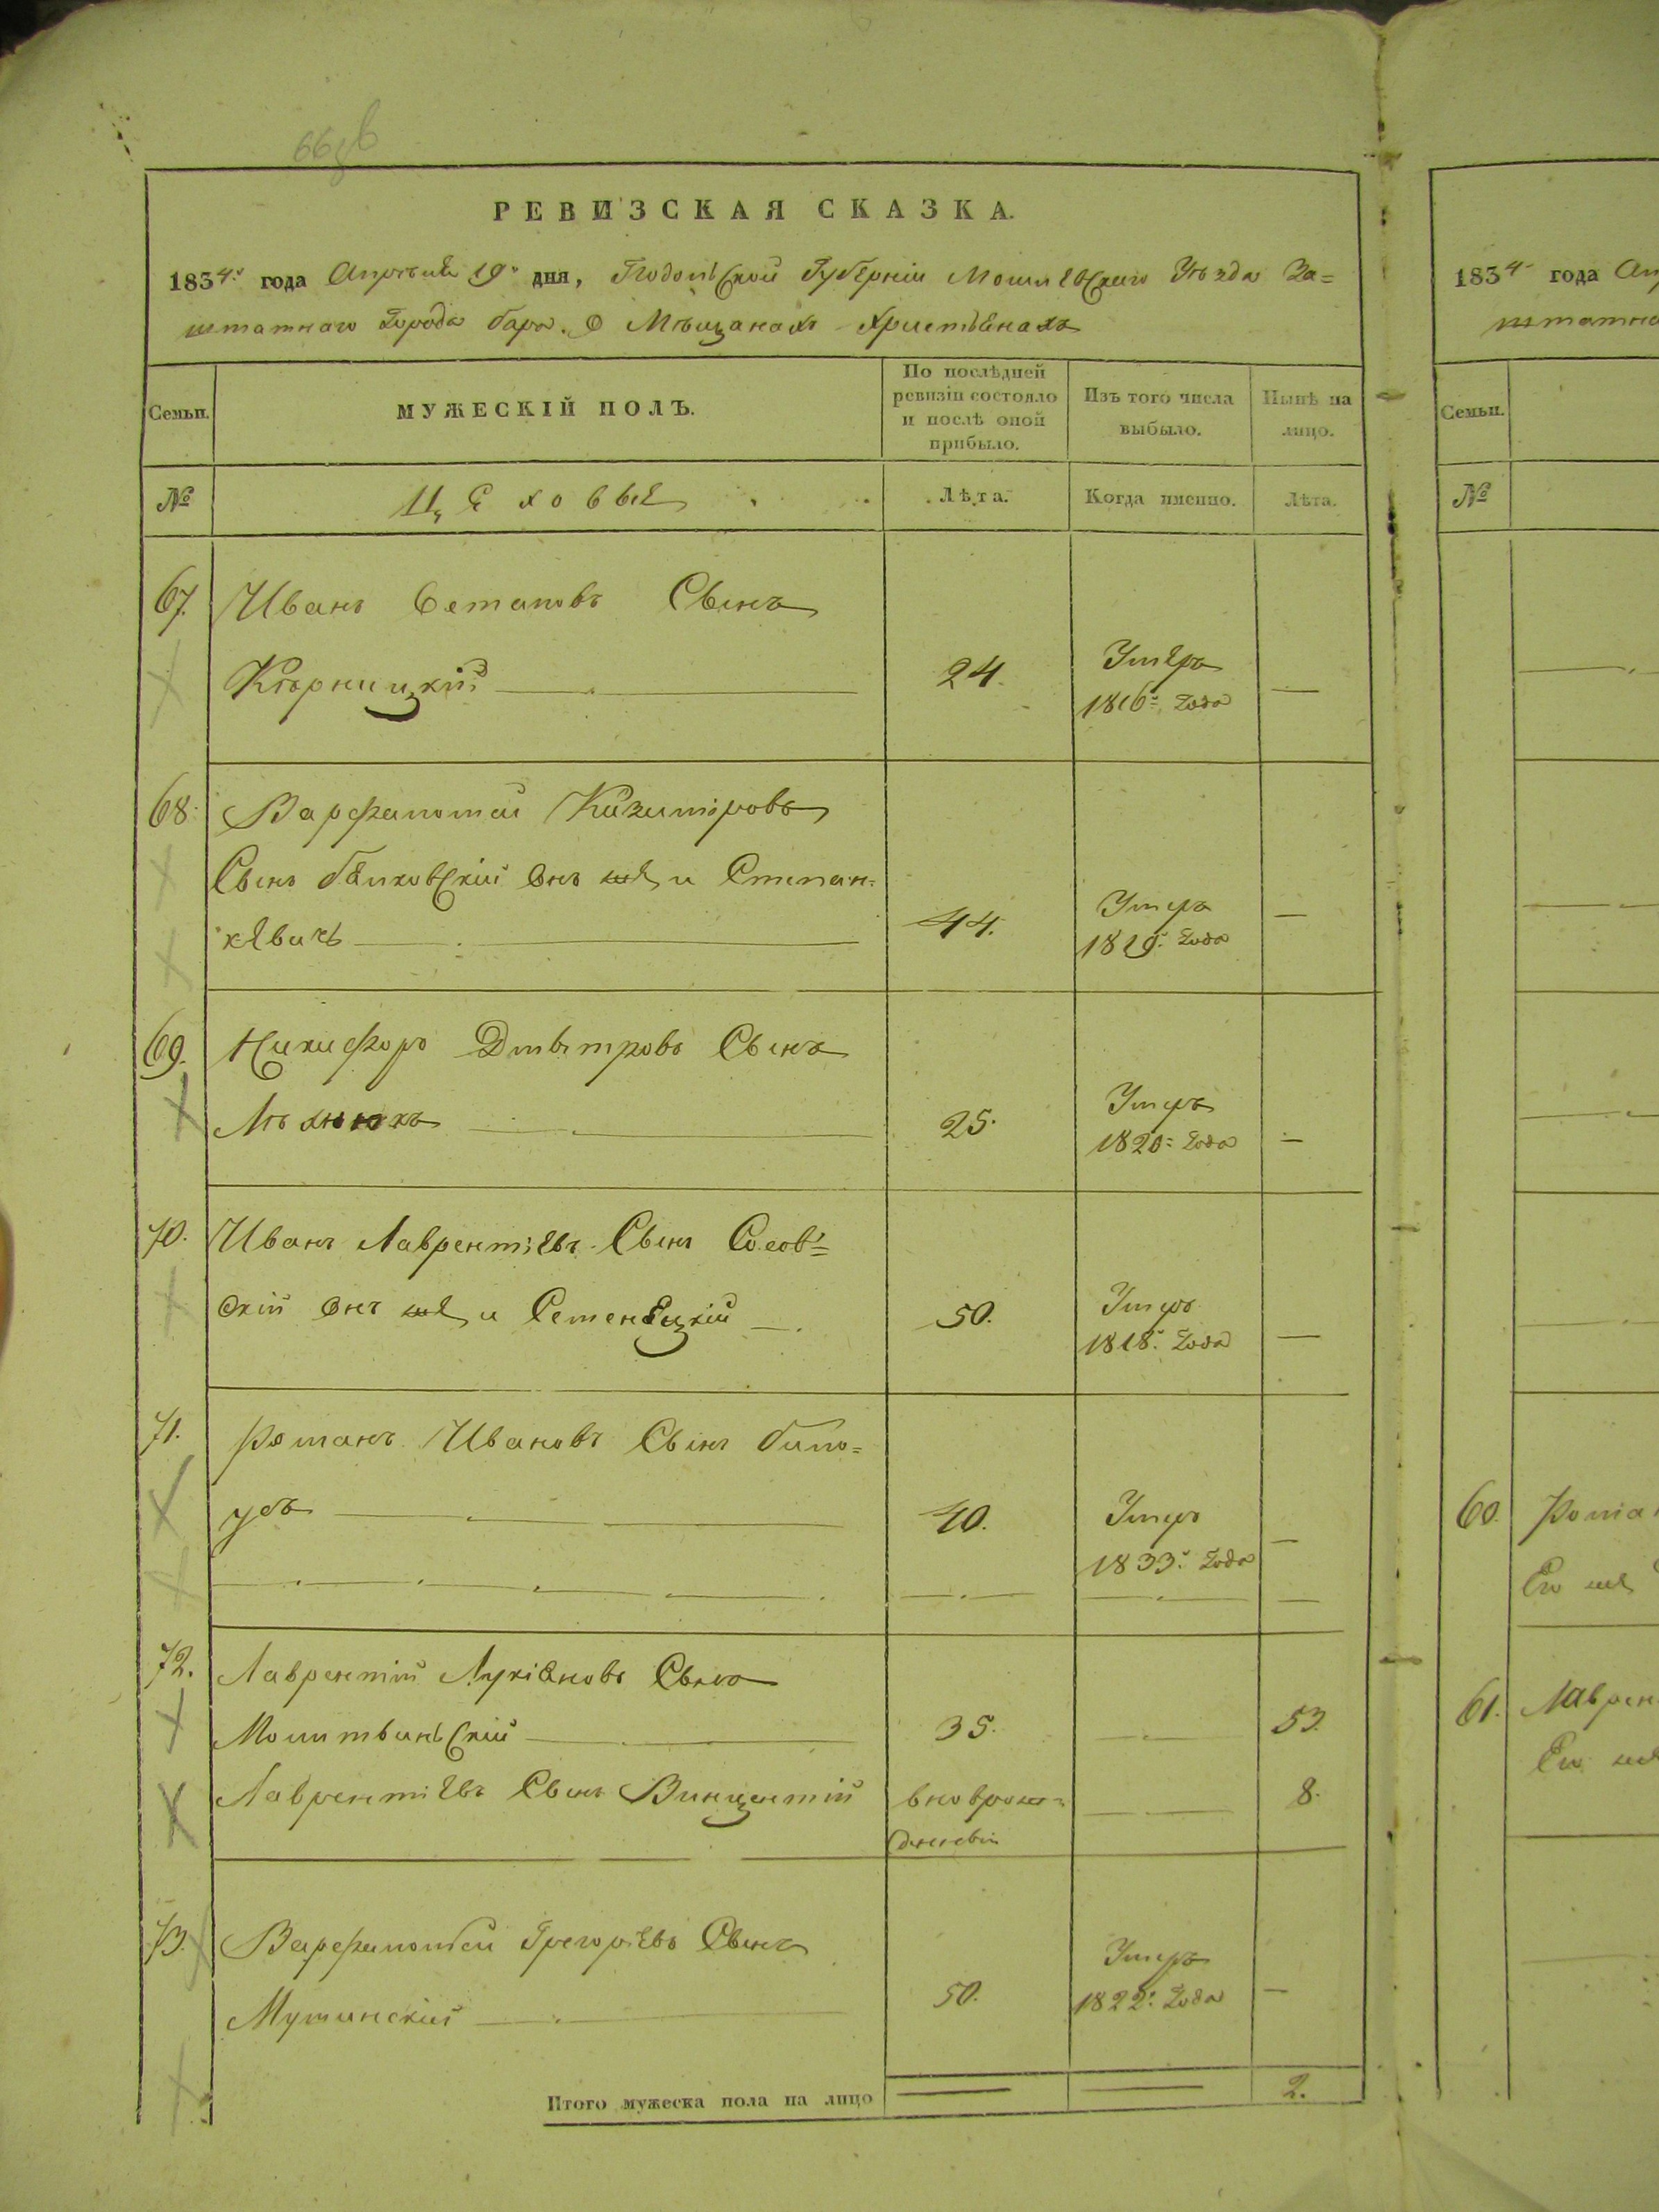 66 зв
РЕВИЗСКАЯ СКАЗКА.
1834 года Апреля 19 дня, Подольской Губерніи Могилевскаго Уезда За=
штатнаго Города Бара. О Мещанахъ Христіянахъ
Семьи.
МУЖЕСКІЙ ПОЛЪ.
По послѣдней ревизіи состояло и послѣ оной прибыло.
Изъ того числа выбыло.
Нынѣ на лицо.
№
Цеховые
Лѣта.
Когда именно.
Лѣта.
67. Иванъ Семановъ Сынъ
24. Умеръ
1816 года —
68. Варфаломей Казимировъ
Сынъ онъ же и Степан=
кевичъ 44. Умеръ —
1819 года
69. Никифоръ Дмытровъ Сынъ
25. Умеръ
1820 года —
70. Иванъ Лаврентіевъ Сынъ
скій онъ же и Семенецкій 50. Умеръ
1818 года —
71. Романъ Ивановъ Сынъ Було=
40. Умеръ
1833 года —
72. Лаврентій Лукіяновъ Сынъ
35. — 53.
Лаврентіевъ Сынъ Винцентій вноврож= — 8.
денный
73. Варфаломей Грегоріевъ Сынъ
50. Умеръ
1822 года —
Итого мужеска пола на лицо 2.
1834 года
Семьи.
№
60.
Его же
61.
Его же